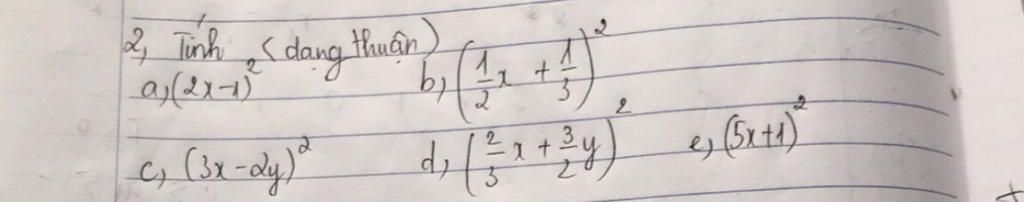 2, Tính (dạng thuận)
a, (2x-1)² b, (1/2 x + 1/3)²
c, (3x-2y)² d, (2/3 x + 3/2 y)² e, (5x+1)²